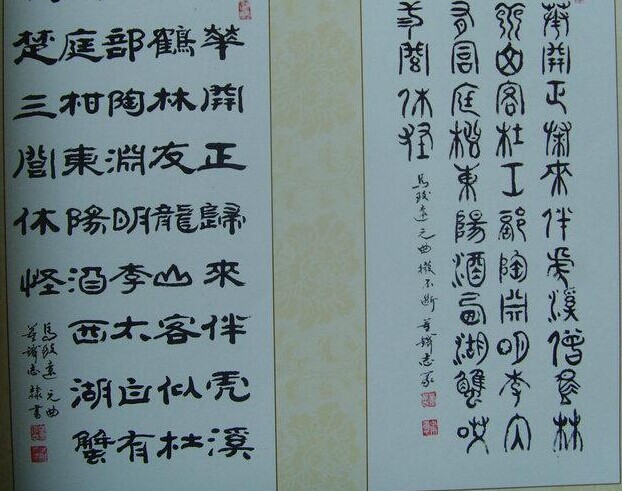 華開正歸來伴虎溪僧鶴林
客杜工部陶淵明李太
有洞庭柑東陽酒西湖蟹哎
閭休怪
馬致遠元曲撥不斷 鐵志篆
華開正歸來伴虎溪
鶴林友龍山客似杜
部陶淵明李太白有
庭柑東陽酒西湖蟹
楚三閭休怪
馬致遠元曲
鐵志隸書